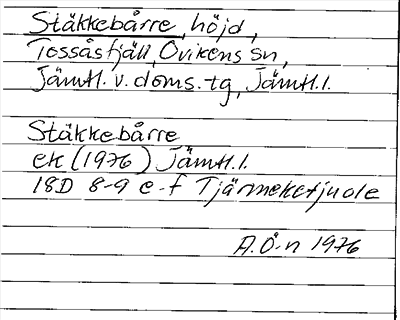 Stäkkebårre, höjd,
Tossåsfjäll, Ovikens sn,
Jämtl. v. doms. tg, Jämtl. l.
Stäkkebårre
ek (1976) Jämtl. l.
18D 8-9 e-f Tjärmeketjuole
A. Ö-n 1976